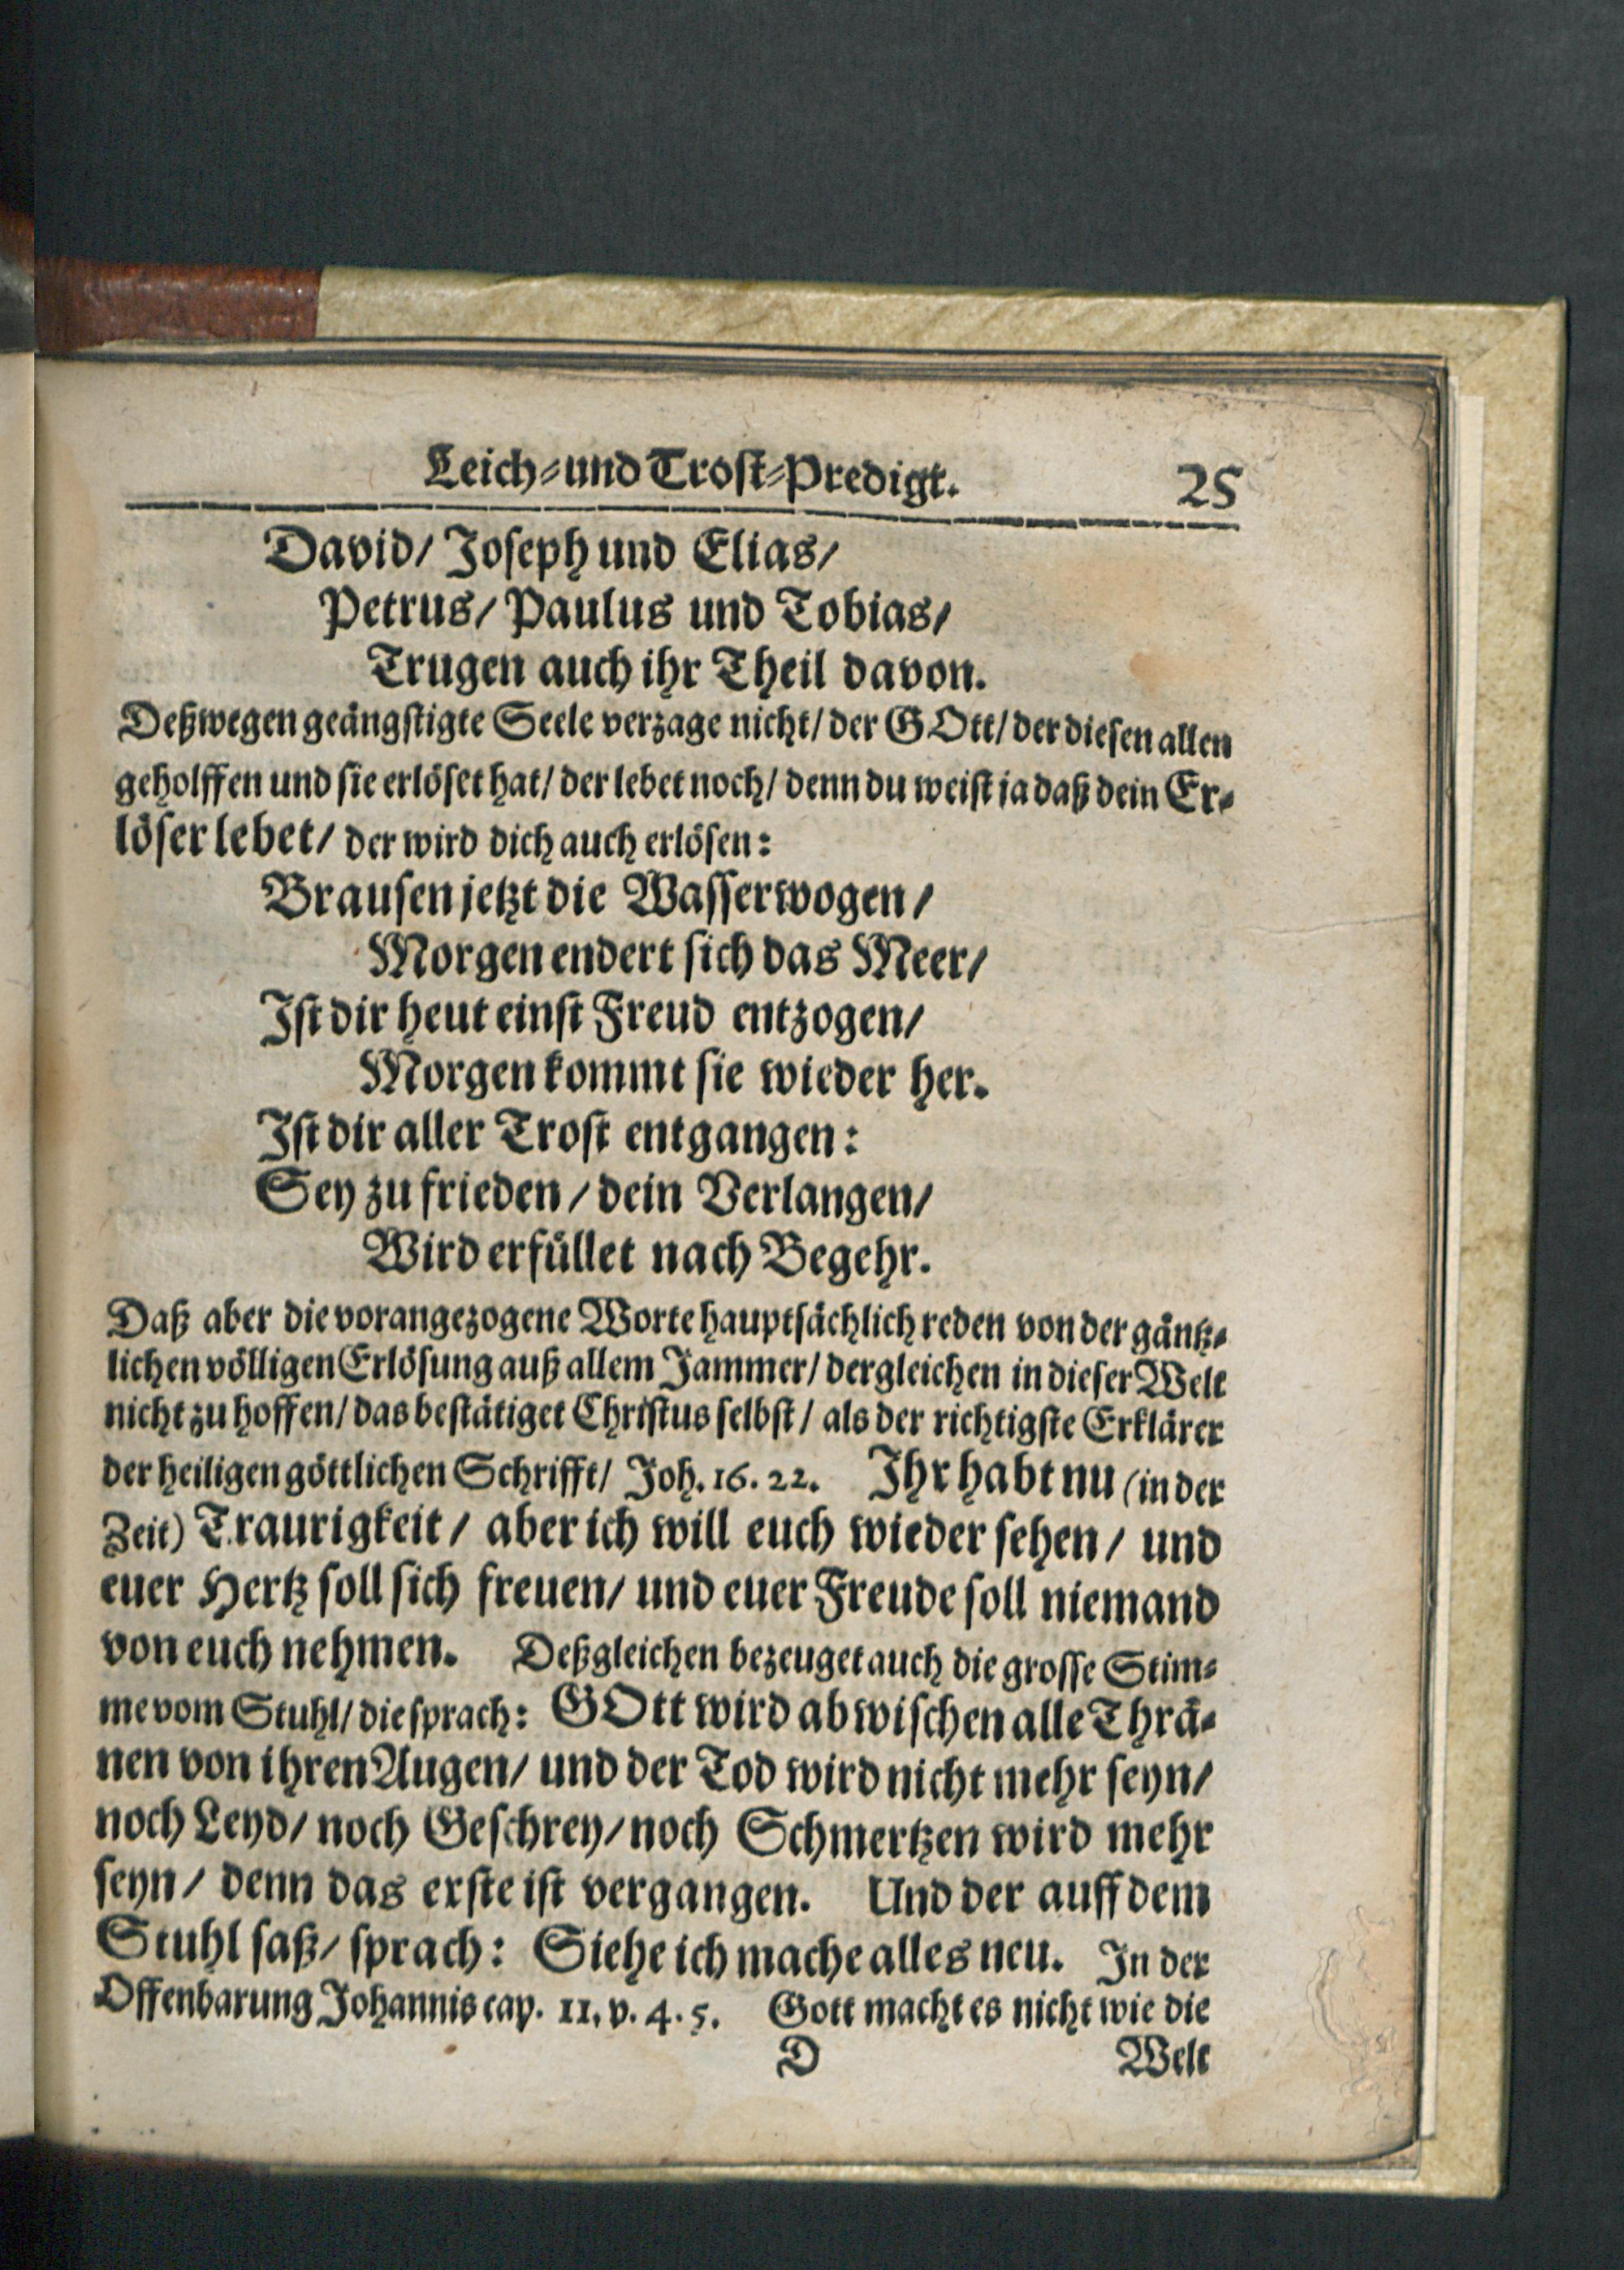 Leich-und Trost-Predigt. 25
David/ Joseph und Elias/
Petrus/ Paulus und Tobias/
Trugen auch ihr Theil davon.
Deßwegen geängstigte Seele verzage nicht/ der GOtt/ der diesen allen
geholffen und sie erlöset hat/ der lebet noch/ denn du weist ja daß dein Er-
löser lebet/ der wird dich auch erlösen:
Brausen jetzt die Wasserwogen/
Morgen endert sich das Meer/
Ist dir heut einst Freud entzogen/
Morgen kommt sie wieder her.
Ist dir aller Trost entgangen:
Sey zu frieden/ dein Verlangen/
Wird erfüllet nach Begehr.
Daß aber die vorangezogene Worte hauptsächlich reden von der gäntz-
lichen völligen Erlösung auß allem Jammer/ dergleichen in dieser Welt
nicht zu hoffen/ das bestätiget Christus selbst/ als der richtigste Erklärer
der heiligen göttlichen Schrifft/ Joh. 16. 22. Ihr habt nu (in der
Zeit) Traurigkeit/ aber ich will euch wieder sehen/ und
euer Hertz soll sich freuen/ und euer Freude soll niemand
von euch nehmen. Deßgleichen bezeuget auch die grosse Stim-
me vom Stuhl/ die sprach: GOtt wird abwischen alle Thrä-
nen von ihren Augen/ und der Tod wird nicht mehr seyn/
noch Leyd/ noch Geschrey/ noch Schmertzen wird mehr
seyn/ denn das erste ist vergangen. Und der auff dem
Stuhl saß/ sprach: Siehe ich mache alles neu. In der
Offenbarung Johannis cap. 11. v. 4. 5. Gott macht es nicht wie die
D Welt